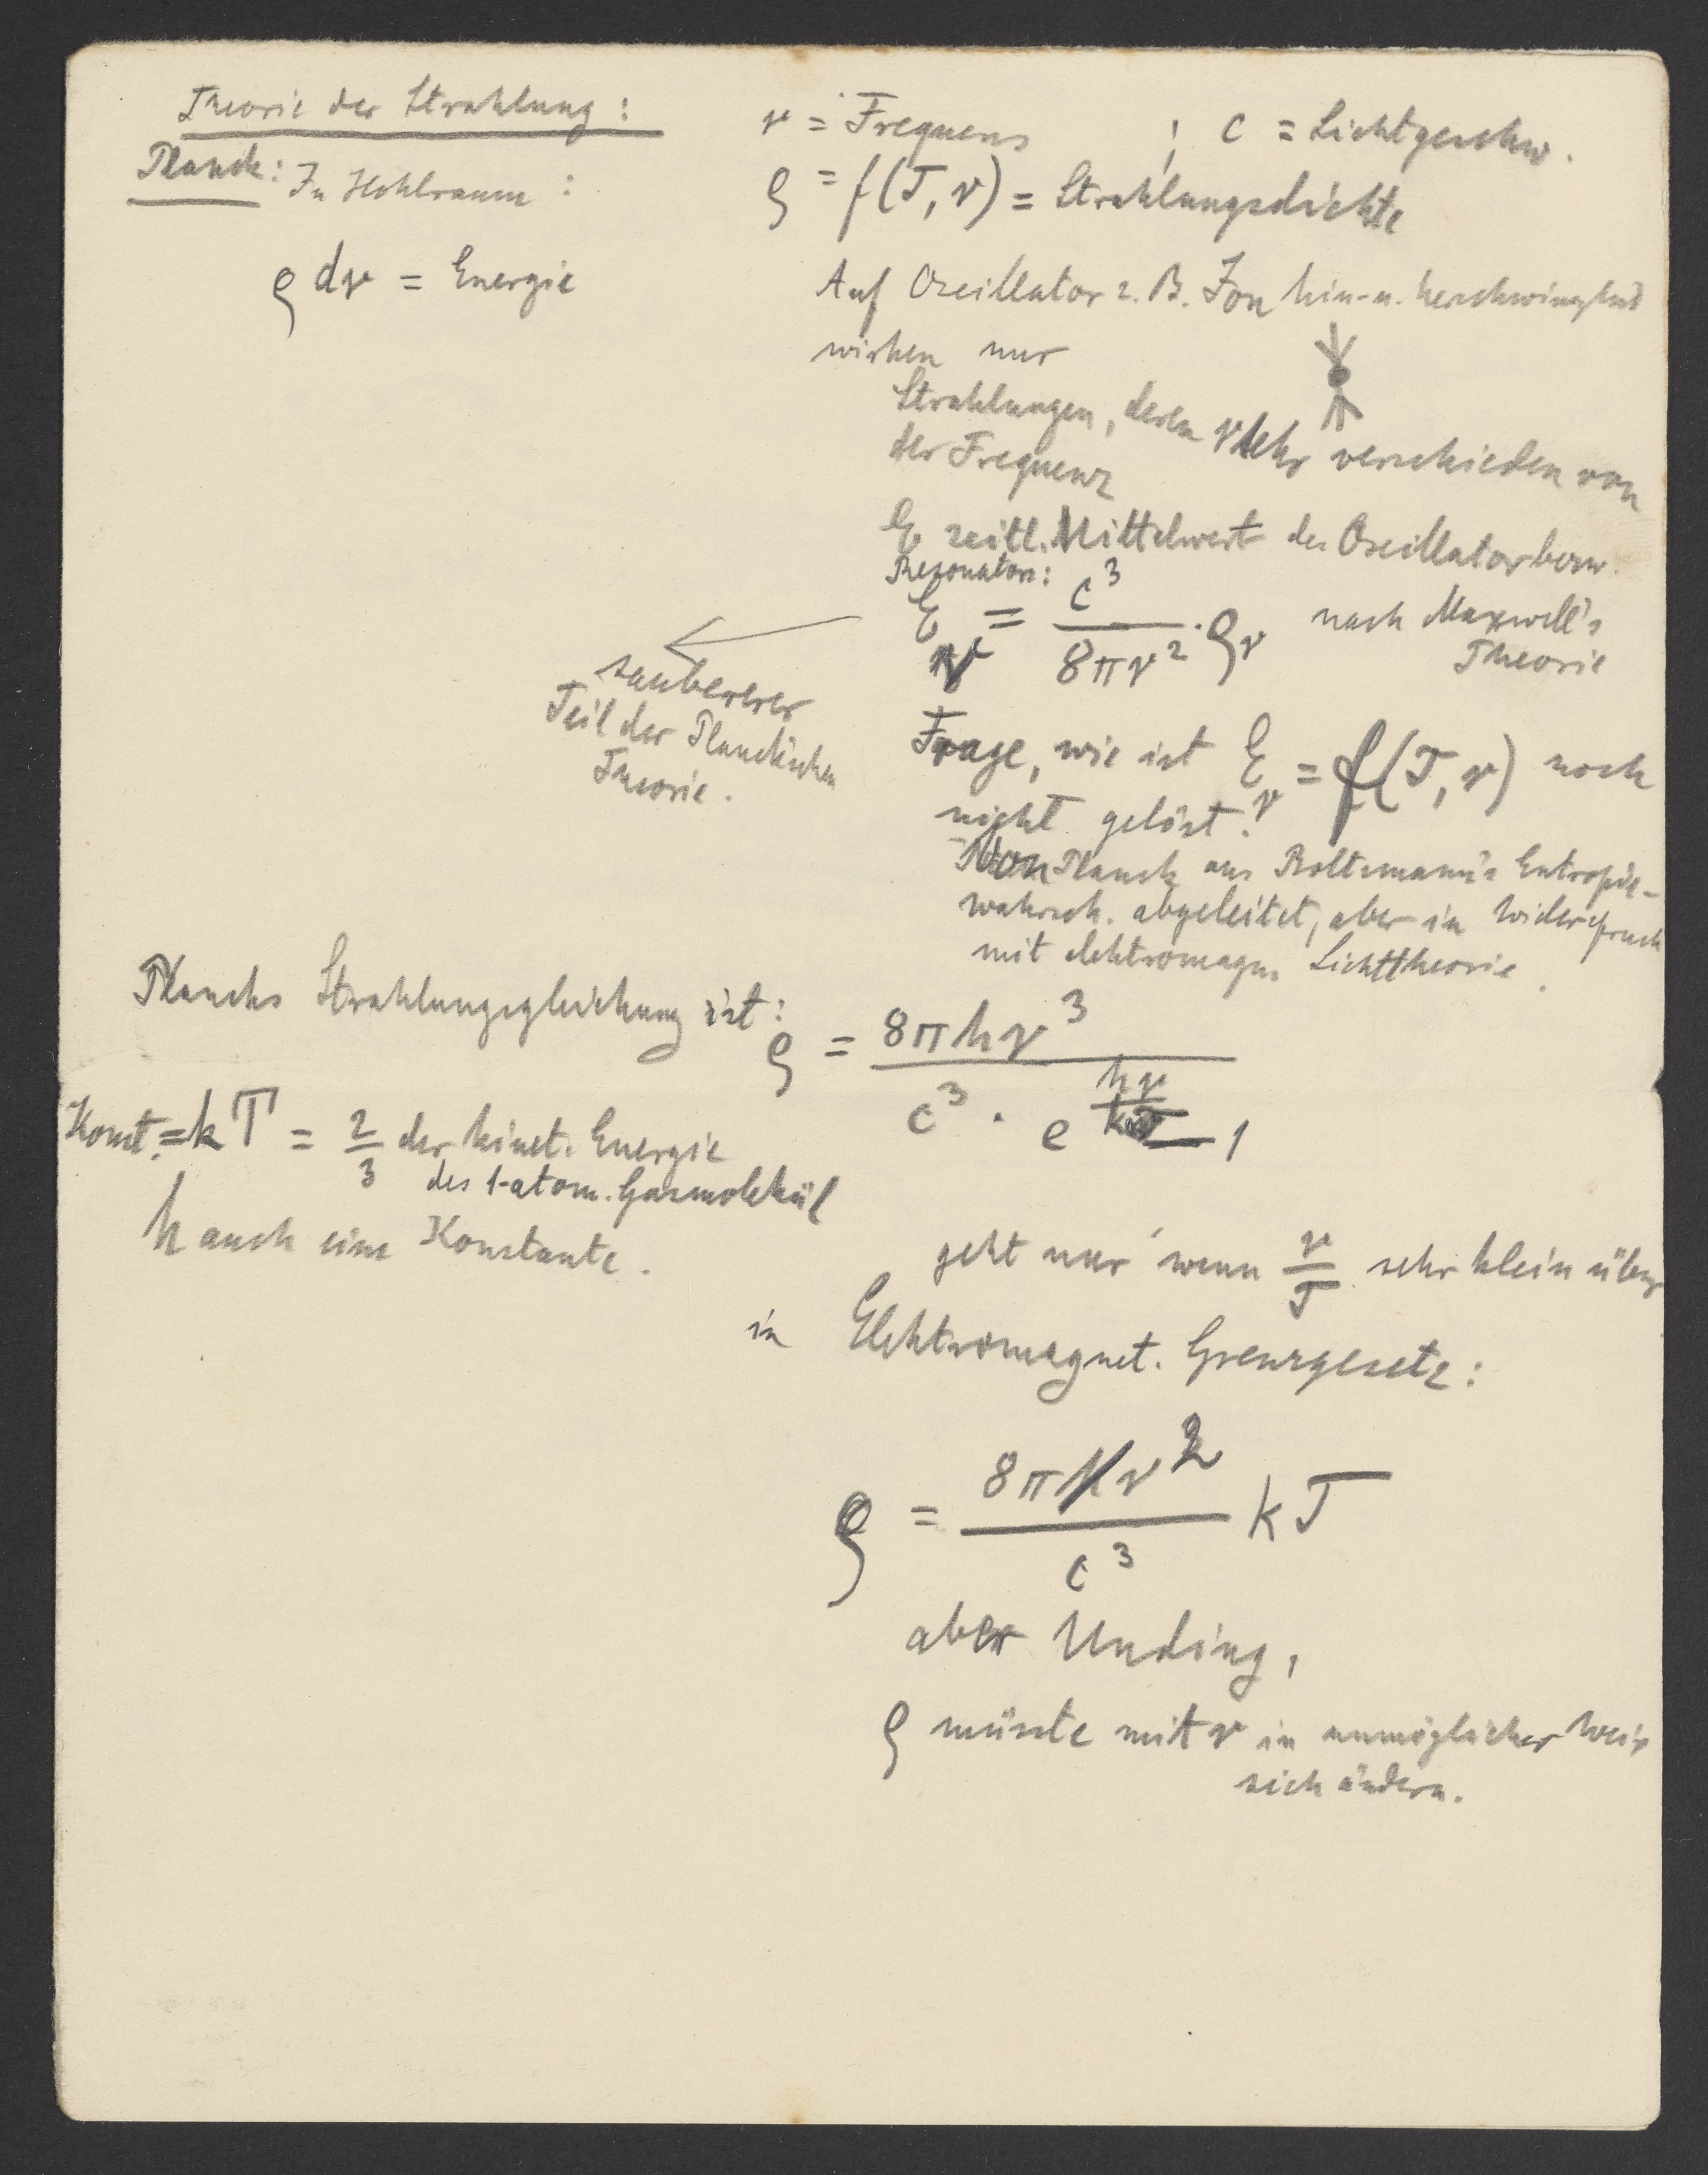 Theorie der Strahlung:
Planck: In Hohlraum:
ρ dν = Energie
ν = Frequens ; c = Lichtgeschw.
ρ = f(T, ν) = Strahlungsdichte
Auf Oscillator z. B. Jon hin- u. herschwingend
wirken nur
Strahlungen, deren ν sehr verschieden von
der Frequenz
E zeitl. Mittelwert des Oscillator bezw.
Resonators:
E_ν = c³ / 8πν² · ρ_ν nach Maxwell's
Theorie
saubererer
Teil der Planckischen
Theorie.
Frage, wie ist E_ν = f(T, ν) noch
nicht gelöst.
Von Planck aus Boltzmann's Entropie-
wahrsch. abgeleitet, aber in Widerspruch
mit elektromagn. Lichttheorie.
Plancks Strahlungsgleichung ist:
ρ = 8πhν³ / c³ · e^(hν/kT) – 1
Konst. = kT = 2/3 der kinet. Energie
des 1-atom. Gasmolekül
h auch eine Konstante.
geht nur wenn ν/T sehr klein über
in Elektromagnet. Grenzgesetz:
ρ = 8πν² / c³ kT
aber Unding,
ρ müsste mit ν in unmöglicher Weise
sich ändern.